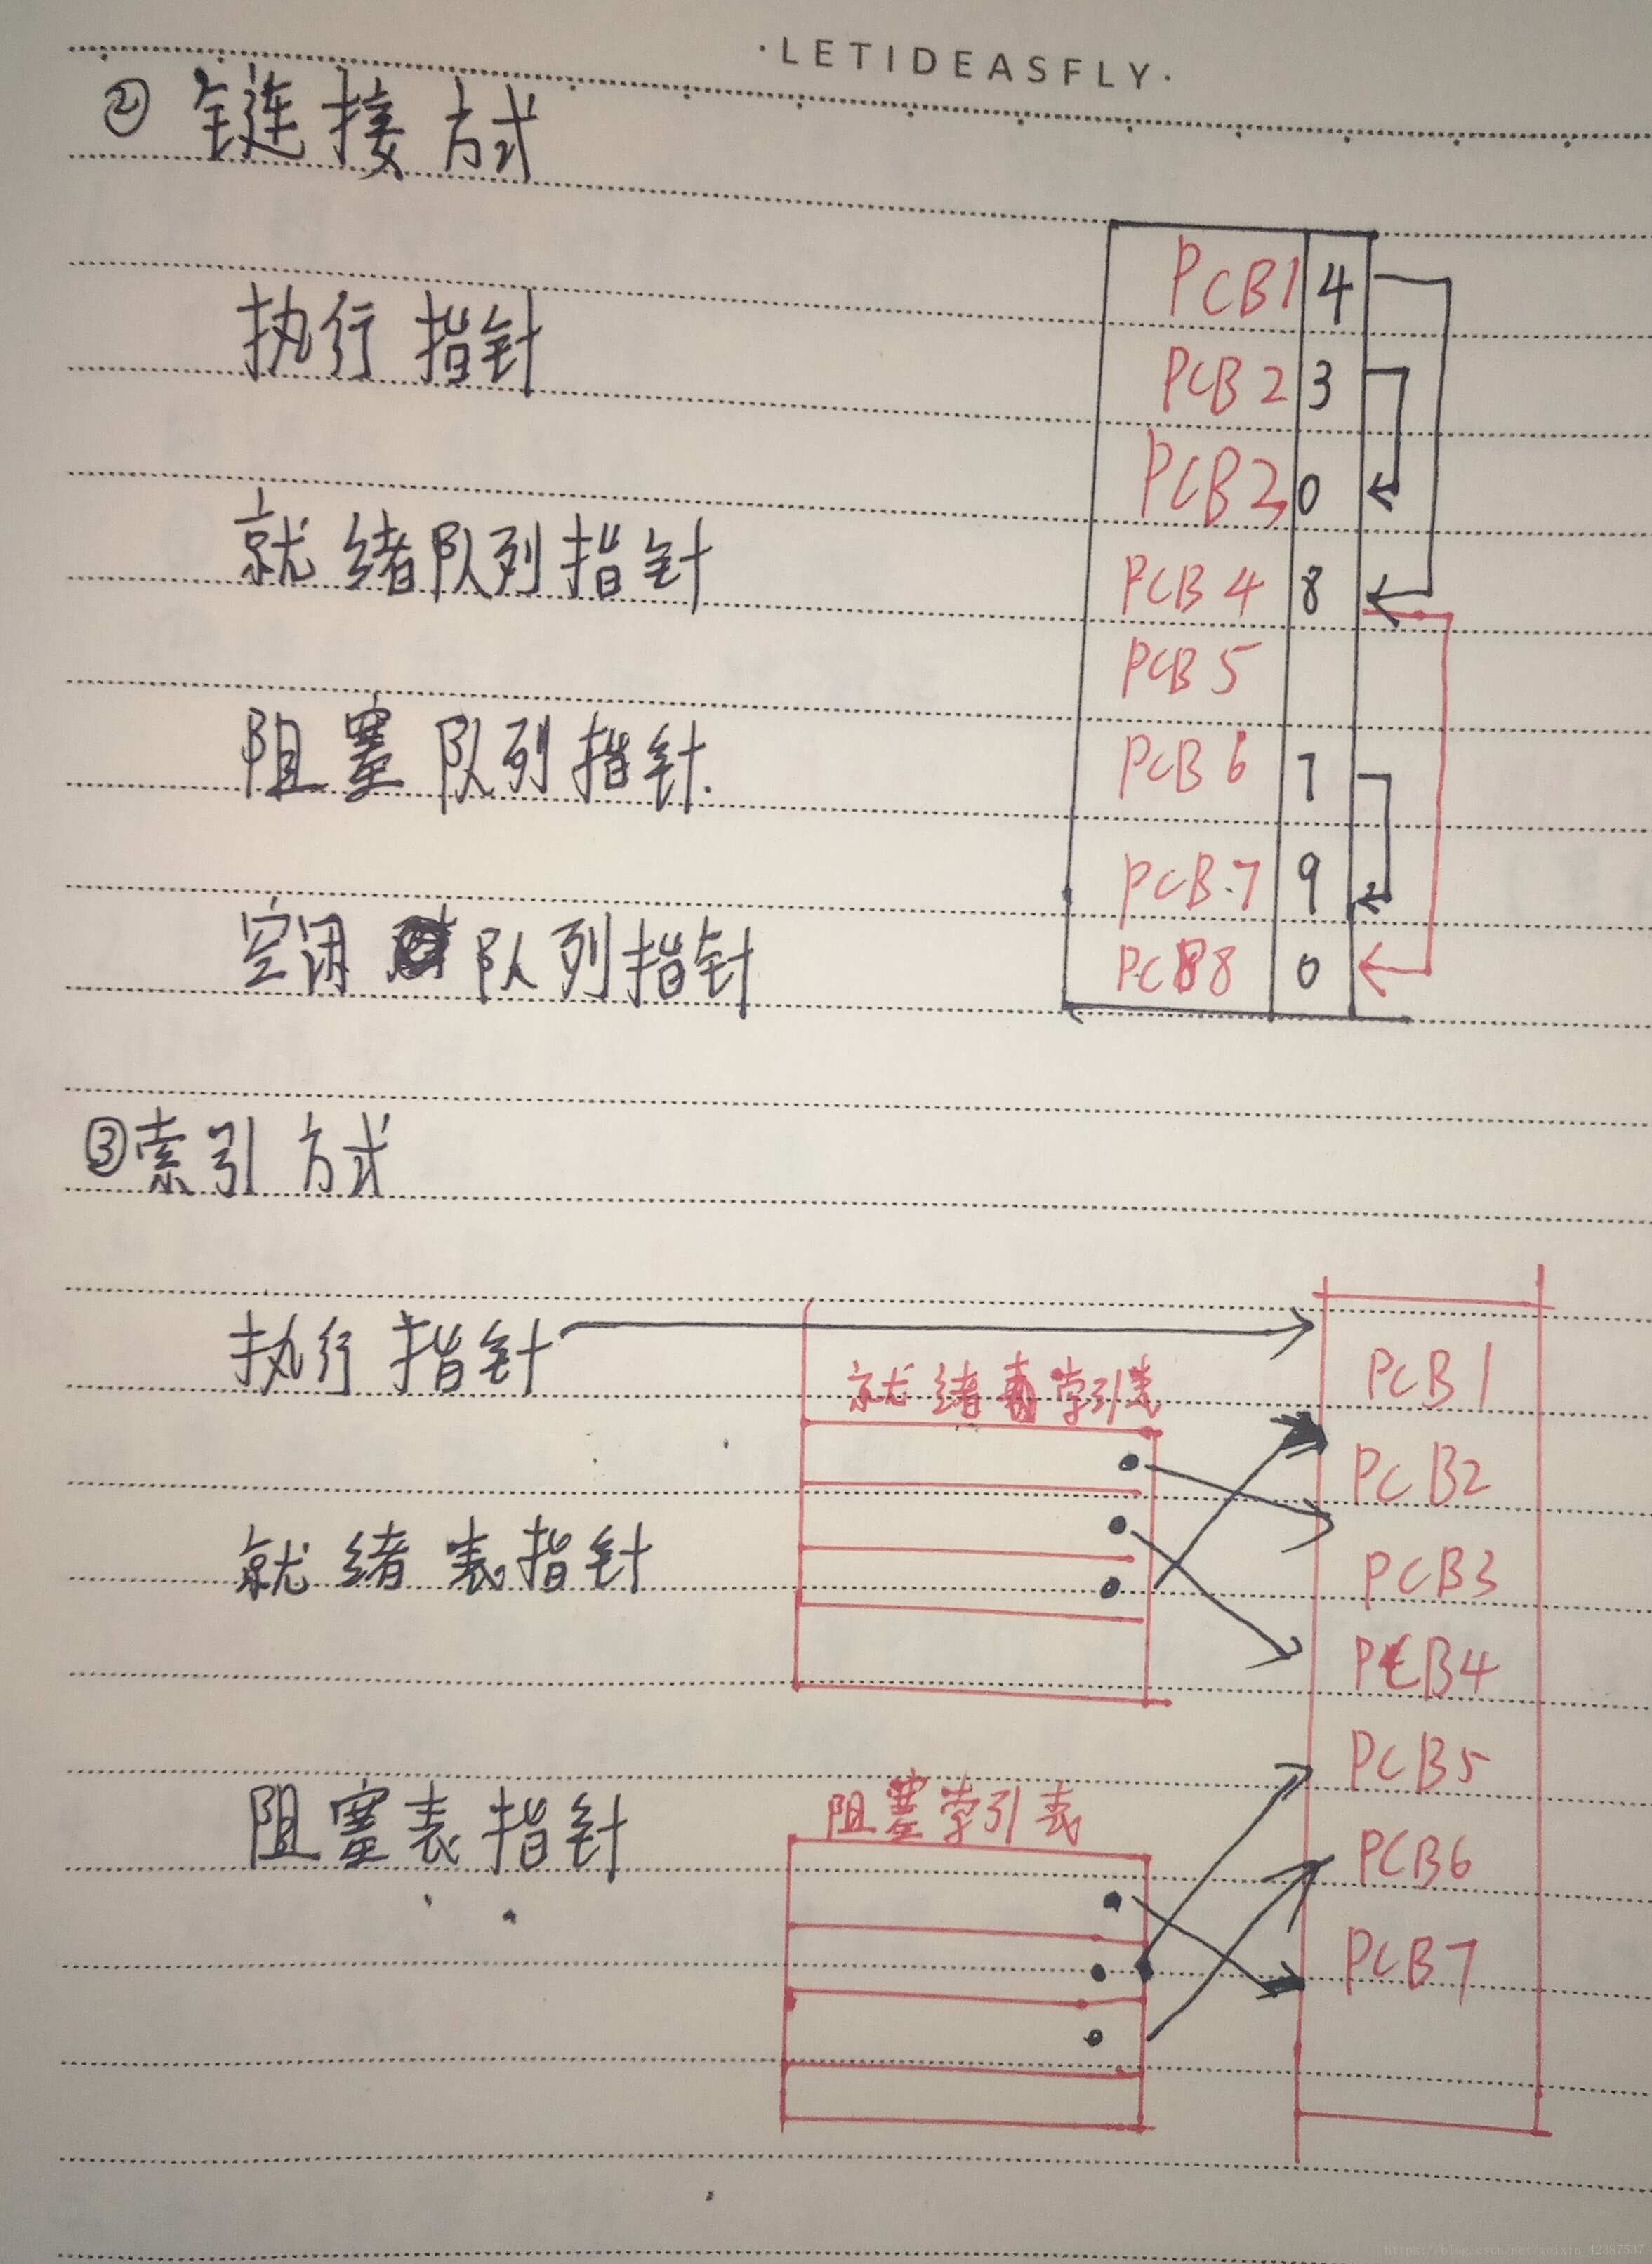 ·LETIDEASFLY·
② 链连接方式
PCB1 4
执行指针
PCB2 3
PCB3 0
就绪队列指针
PCB4 8
PCB5
阻塞队列指针.
PCB6 7
PCB.7 9
空闲队列指针
PCB8 0
③索引方式
执行指针
就绪索引表
PCB1
PCB2
就绪表指针
PCB3
PCB4
PCB5
阻塞表指针
阻塞索引表
PCB6
PCB7
https://blog.csdn.net/weixin_42387537